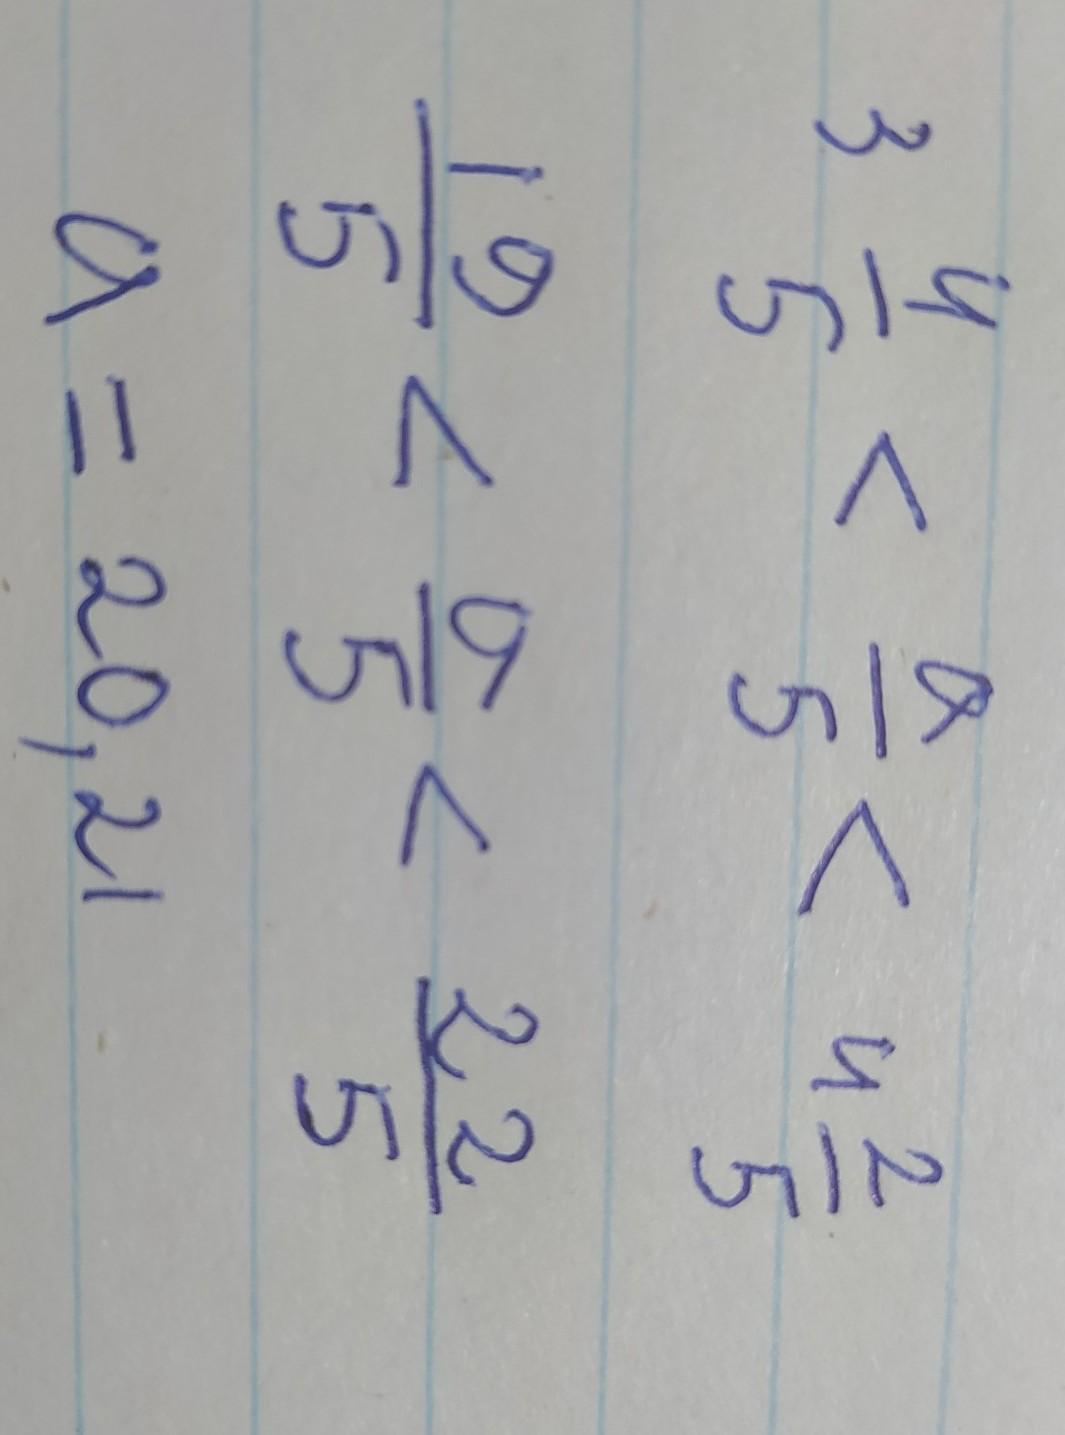 3 4/5 < a/5 < 4 2/5
19/5 < a/5 < 22/5
a = 20, 21